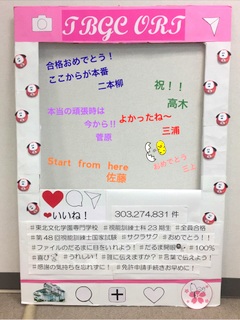 TBGC ORT
合格おめでとう！
ここからが本番
二本柳
祝！！
高木
本当の頑張時は
今から!!
菅原
よかったね〜
三浦
おめでとう
三上
Start from here
佐藤
いいね！
303,274,831 件
#東北文化学園専門学校 #視能訓練士科23期生 #全員合格
#第48回視能訓練士国家試験 #サクラサク #おめでとう！！
#ファイルのだるまに目をいれよう！ #だるま開眼 #100%
#喜び #うれしい！ #誰に伝えますか？ #言葉で伝えよう！
#感謝の気持ちを忘れずに！ #免許申請手続きお早めに！